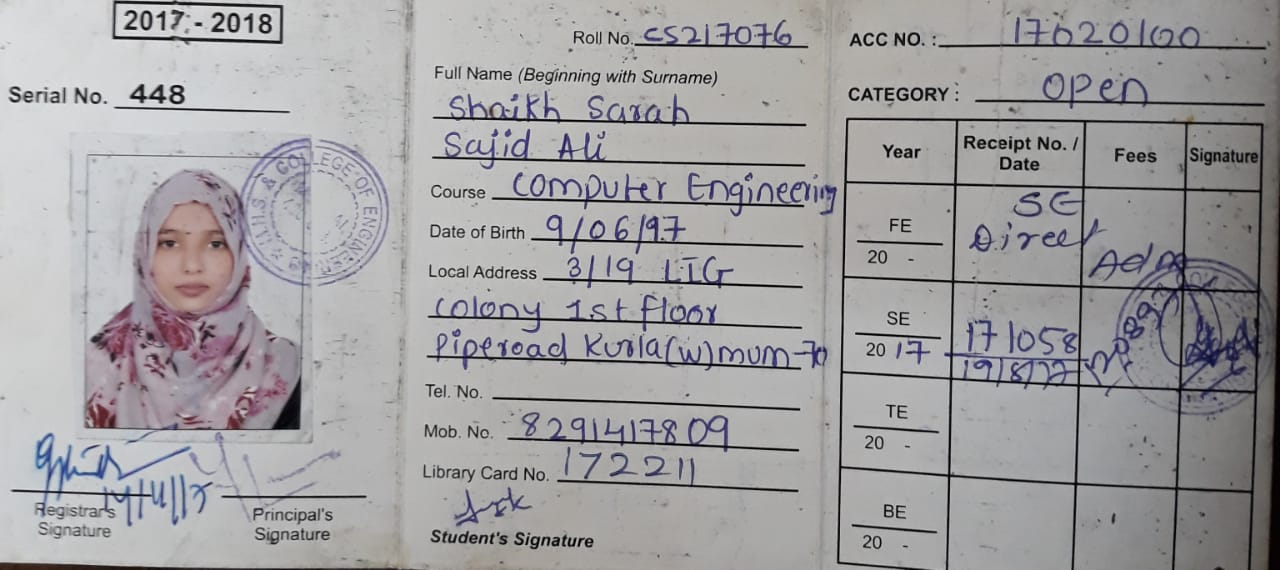 2017 - 2018
Serial No. 448
COLLEGE OF ENGINEERING
Registrar's Signature
Principal's Signature
Roll No. CS217076
Full Name (Beginning with Surname)
Shaikh Sarah
Sajid Ali
Course Computer Engineering
Date of Birth 9/06/97
Local Address 3/19 LIG
colony 1st floor
Piperoad Kurla(w)mum-70
Tel. No.
Mob. No. 8291417809
Library Card No. 172211
Student's Signature
ACC NO. : 17020100
CATEGORY : open
Year Receipt No. / Date Fees Signature
FE 20 - SE Direct Adm
SE 2017 171058 19/8/17
TE 20 -
BE 20 -